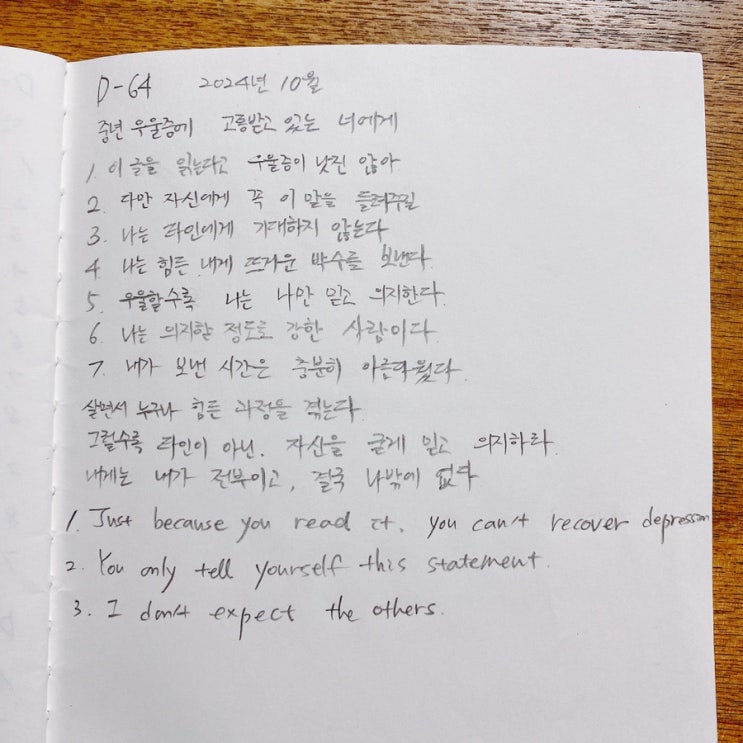 D-64 2024년 10월
중년 우울증에 고통받고 있는 너에게
1. 이 글을 읽는다고 우울증이 낫진 않아
2. 다만 자신에게 꼭 이 말을 들려주길
3. 나는 타인에게 기대하지 않는다
4. 나는 힘든 내게 뜨거운 박수를 보낸다.
5. 우울할수록 나는 나만 믿고 의지한다.
6. 나는 의지할 정도로 강한 사람이다.
7. 내가 보낸 시간은 충분히 아름다웠다.
살면서 누구나 힘든 과정을 겪는다.
그럴수록 타인이 아닌, 자신을 굳게 믿고 의지하라.
내게는 내가 전부이고, 결국 나밖에 없다
1. Just because you read it, you can't recover depression
2. You only tell yourself this statement.
3. I don't expect the others.